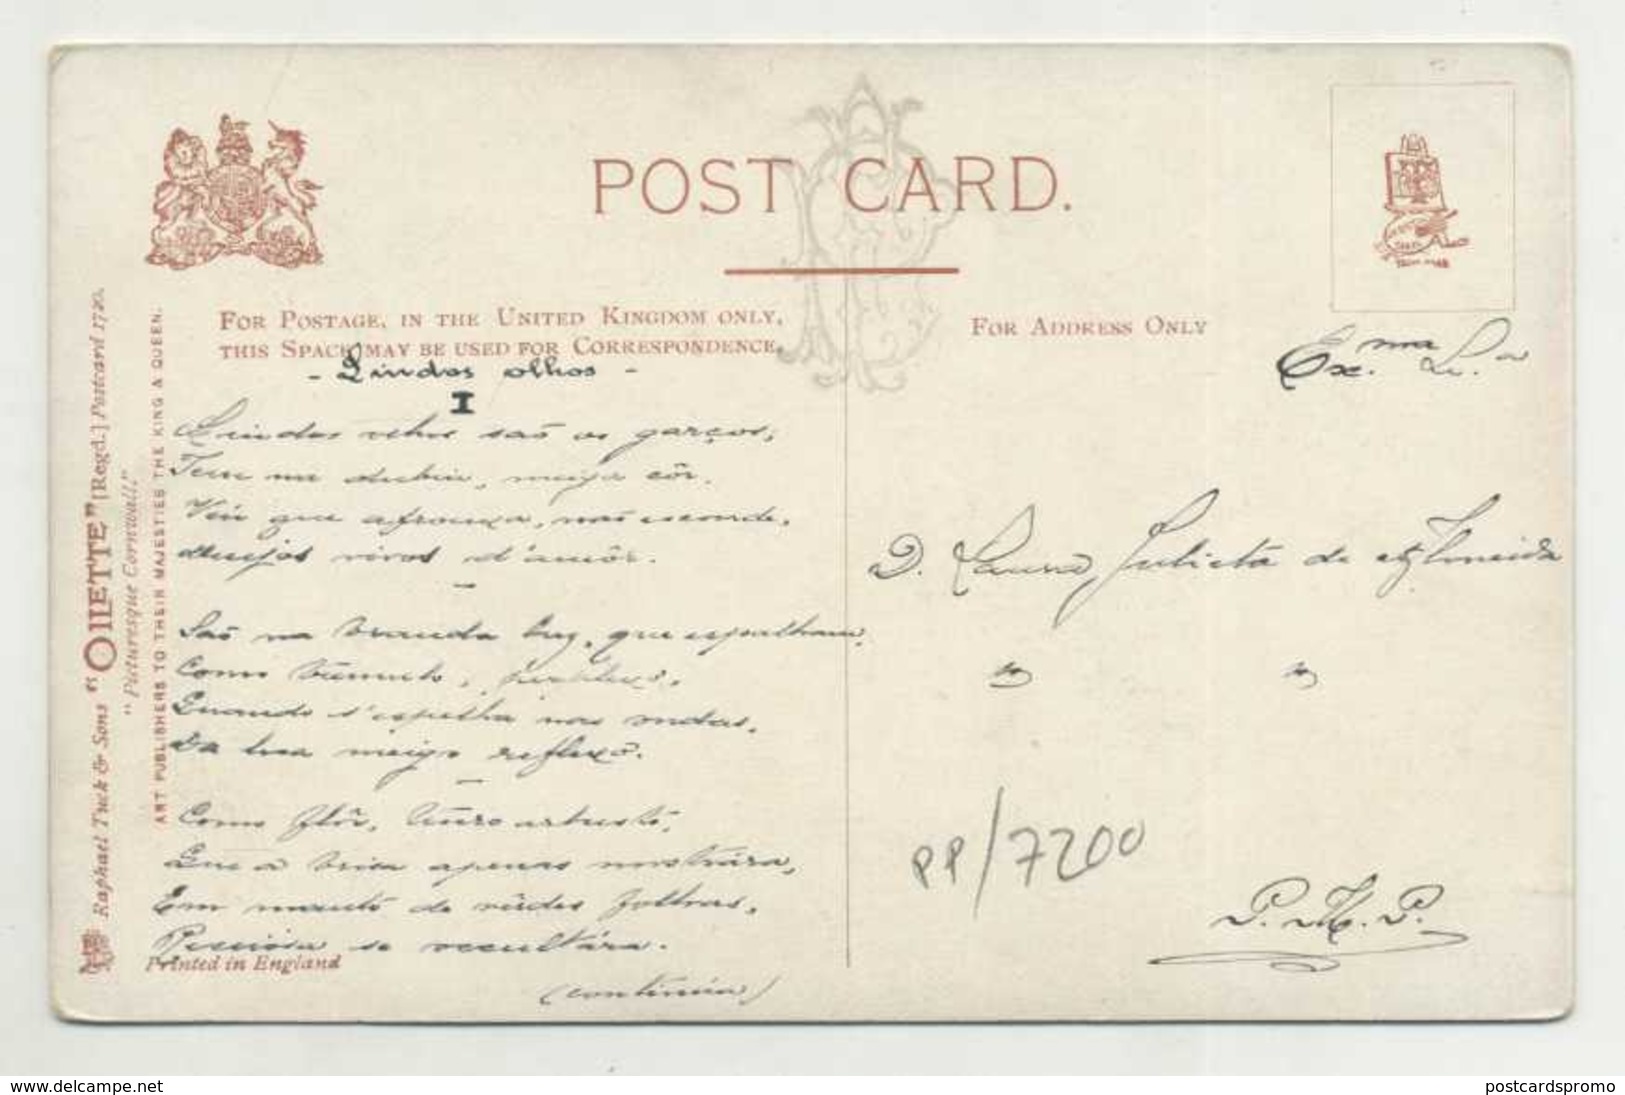 POST CARD.
FOR POSTAGE, IN THE UNITED KINGDOM ONLY,
THIS SPACE MAY BE USED FOR CORRESPONDENCE.
FOR ADDRESS ONLY
Raphael Tuck & Sons' "OILETTE" [Regd.] Postcard 1720.
"Picturesque Cornwall."
ART PUBLISHERS TO THEIR MAJESTIES THE KING & QUEEN.
- Lindos olhos -
I
Lindos olhos são os garços,
Tem na dubia, meiga côr.
Véu que afrouxa, mas esconde,
desejos vivos d'amôr.
São na branda luz, que espalham,
Como trémulo,
Quando s'espelha nas ondas,
Da lua meigo reflexo.
Como flôr, arbusto,
Que a brisa apenas mostrára,
Em manto de vêrdes folhas,
Preciosa se occultára.
(continúa)
Printed in England
Ex.ma Sr.a
D. Laura Julieta de Almeida
" "
PP/7200
P. M. P.
www.delcampe.net
postcardspromo